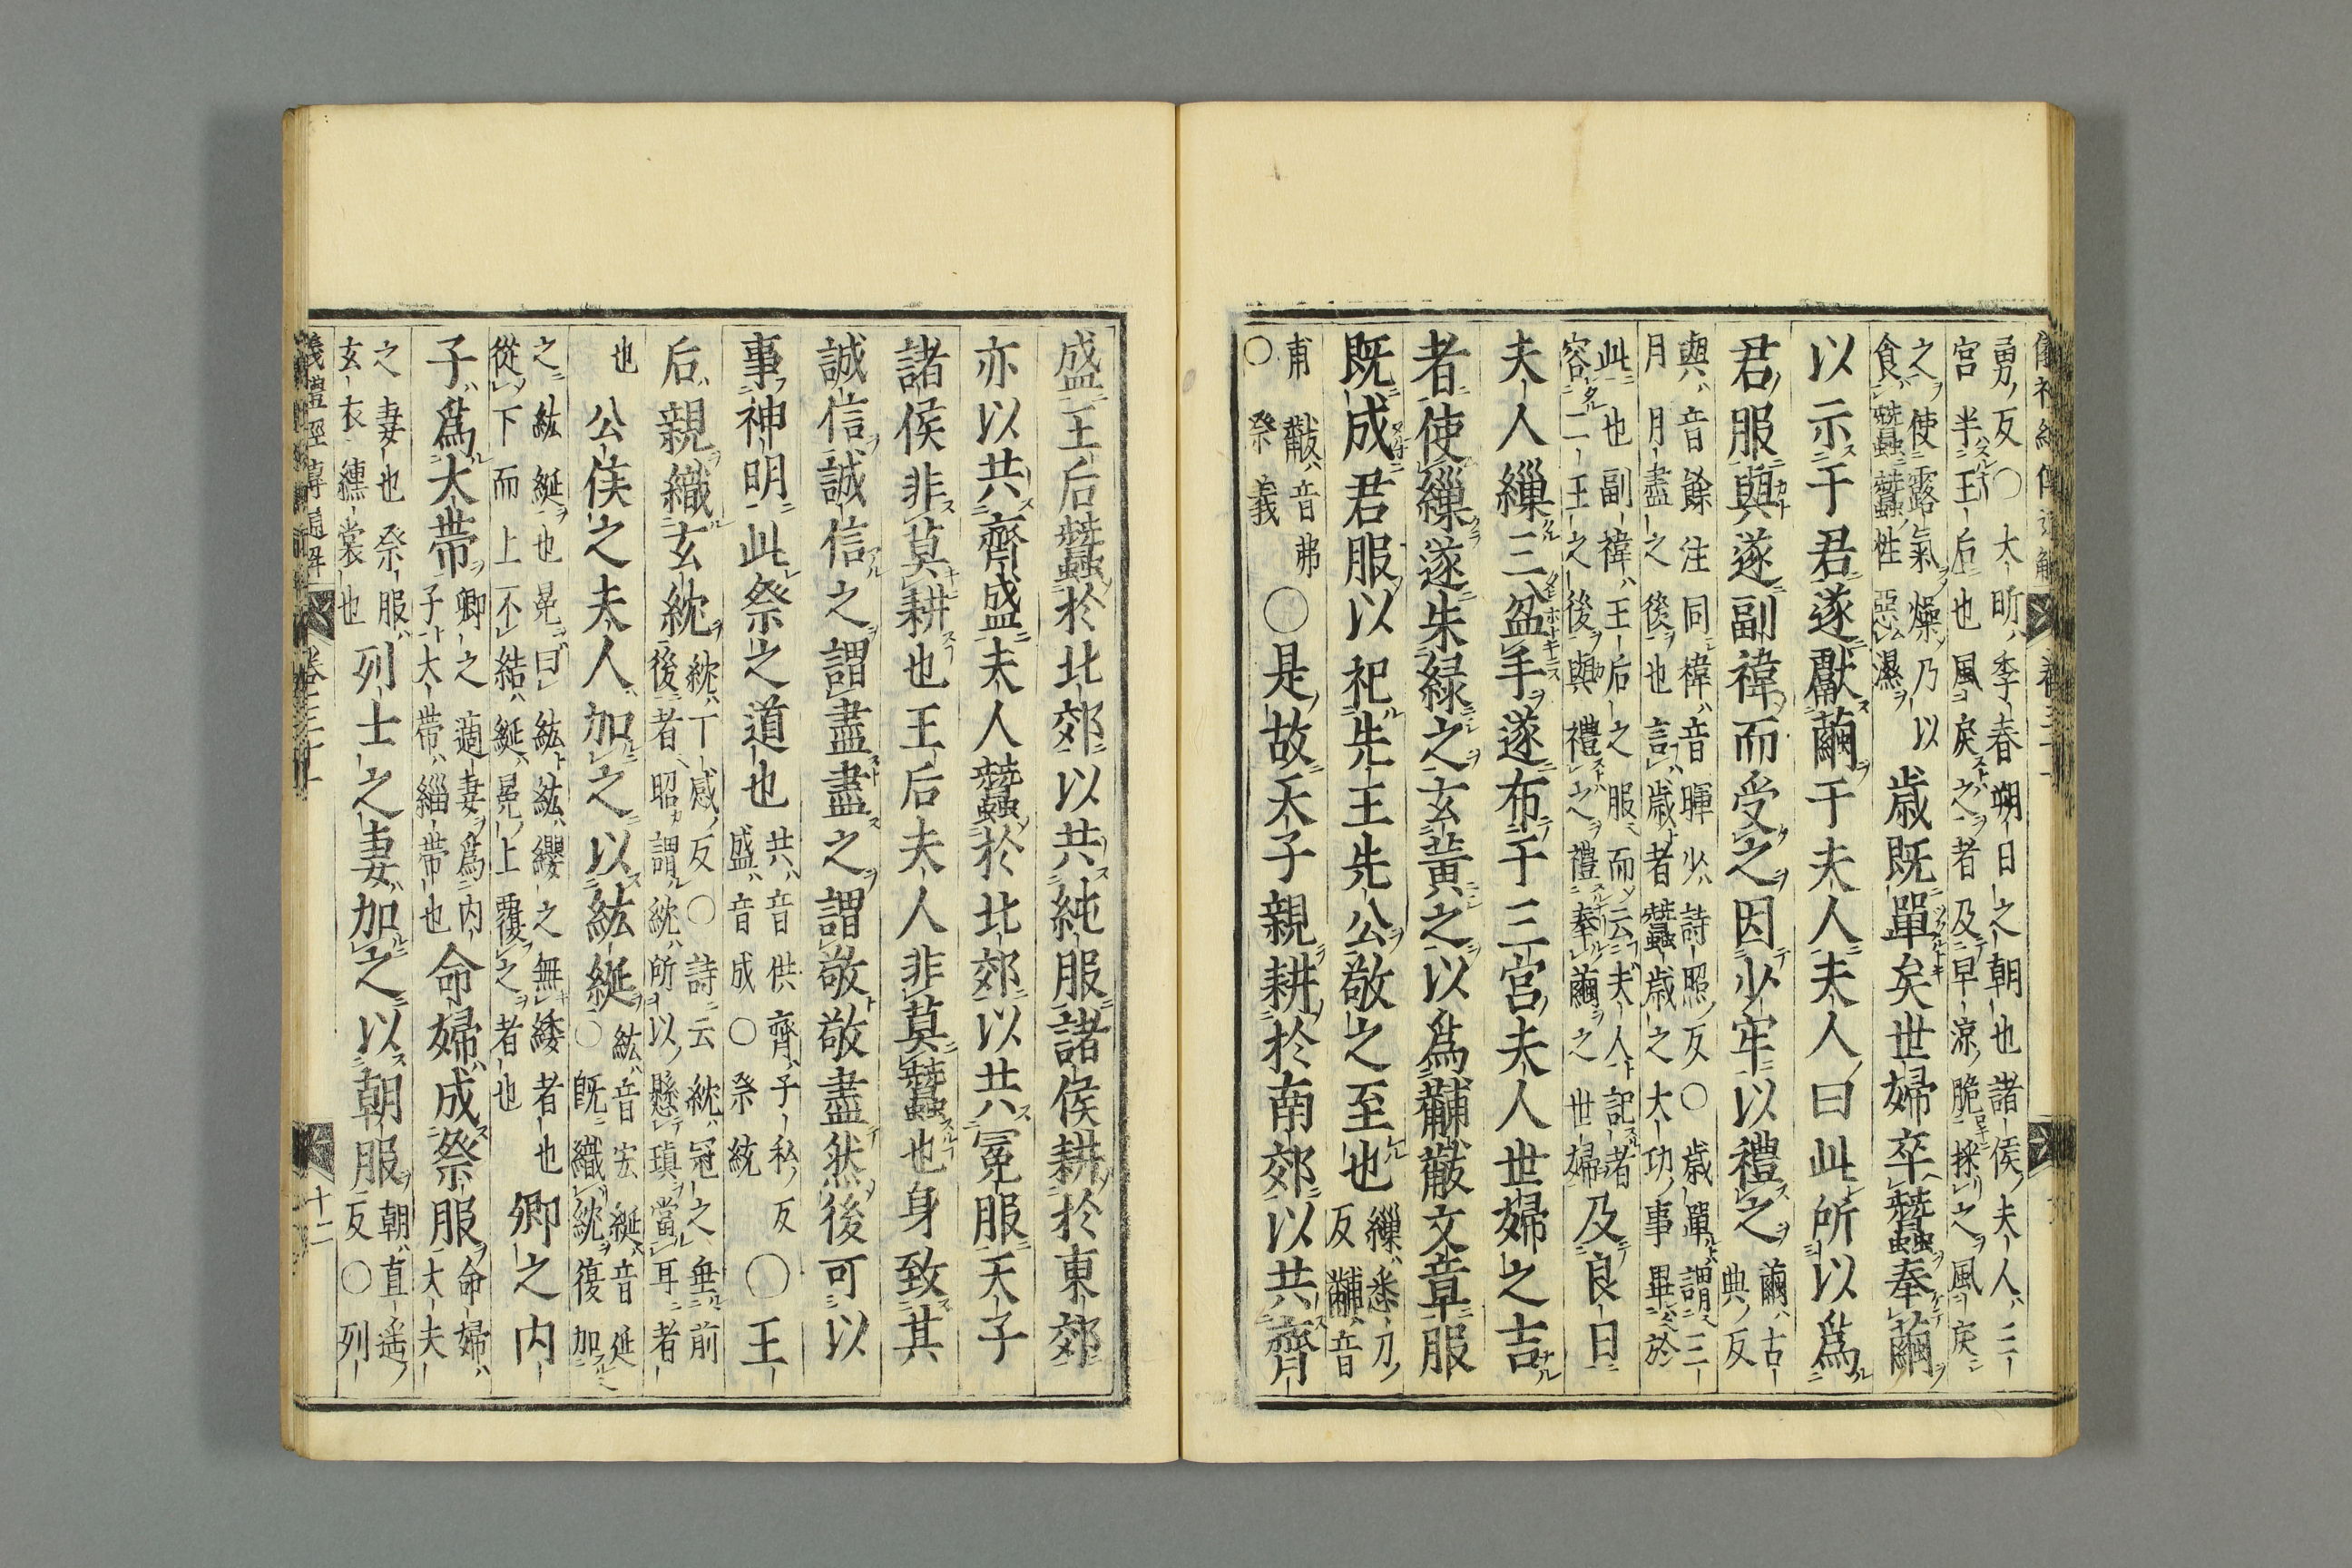 勇反○大昕季春朔日之朝也諸侯夫人三
宮半王后也風戾之者及早涼脆採之風戾
之使露氣燥乃以
食蠶蠶性惡濕
歲既單矣世婦卒蠶奉繭
以示于君遂獻繭于夫人夫人曰此所以爲
君服與遂副褘而受之因少牢以禮之
繭古
典反
與音餘注同褘音暉少詩照反○歲單謂三
月月盡之後也言歲者蠶歲之大功事畢於
此也副褘王后之服而云夫人記者
容二王之後與禮之禮奉繭之世婦
及良日
夫人繅三盆手遂布于三宮夫人世婦之吉
者使繅遂朱緑之玄黃之以爲黼黻文章服
既成君服以祀先王先公敬之至也
繅悉刀
反黼音
甫黻音弗
○祭義
○是故天子親耕於南郊以共齊
盛王后蠶於北郊以共純服諸侯耕於東郊
亦以共齊盛夫人蠶於北郊以共冕服天子
諸侯非莫耕也王后夫人非莫蠶也身致其
誠信誠信之謂盡盡之謂敬敬盡然後可以
事神明此祭之道也
共音供齊子私反
盛音成○祭統
○王
后親織玄紞
紞丁感反○詩云紞冠之垂前
後者昭謂紞所以懸瑱當耳者
也
公侯之夫人加之以紘綖
紘音宏綖音延
○旣織紞復加
之紘綖也冕曰紘紘纓之無緌者也
從下而上不結綖冕上覆之者也
卿之内
子爲大帶
卿之適妻爲内
子大帶緇帶也
命婦成祭服
命婦
大夫
之妻也祭服
玄衣纁裳也
列士之妻加之以朝服
朝直遥
反○列
儀禮經傳通解
十二